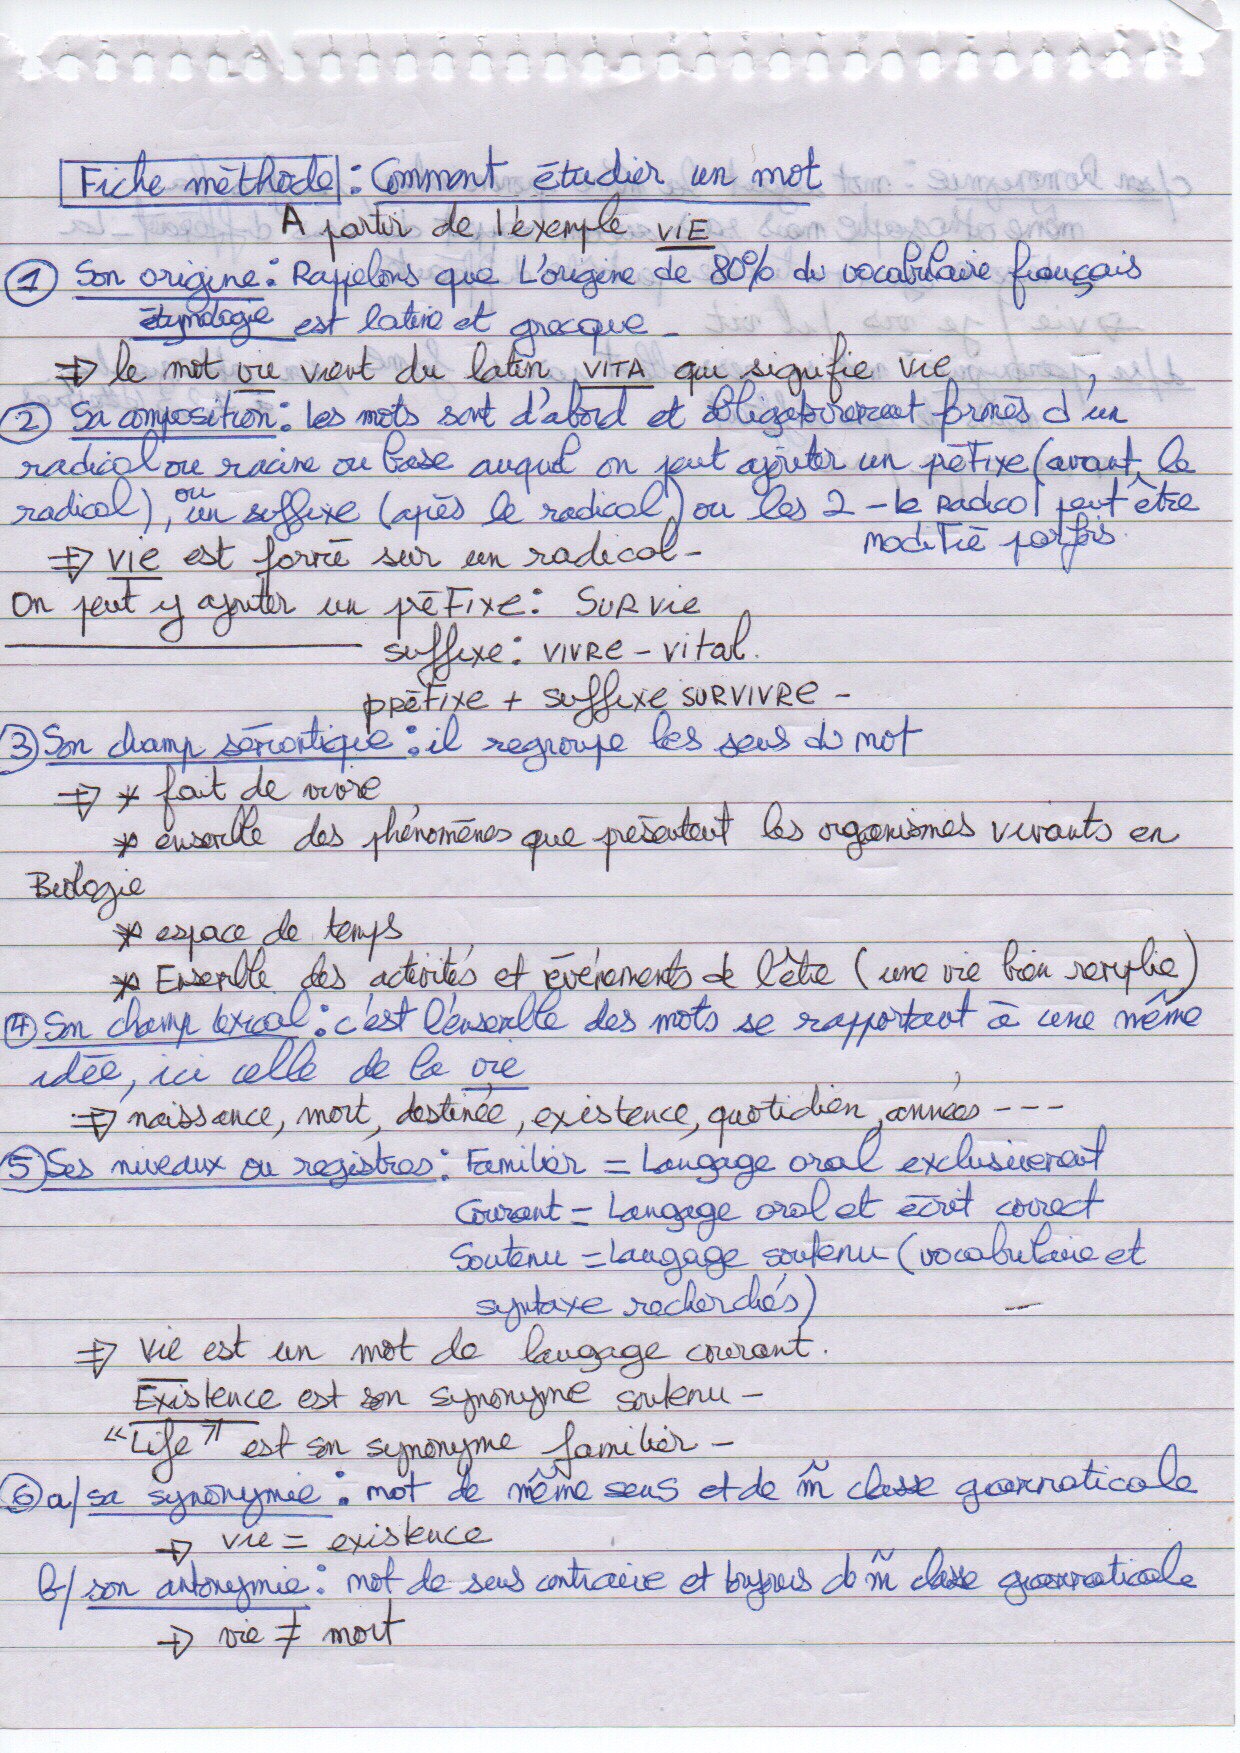 Fiche méthode : Comment étudier un mot
A partir de l'exemple VIE
1 Son origine : Rappelons que l'origine de 80% du vocabulaire français
étymologie est latine et grecque -
⇒ le mot vie vient du latin VITA qui signifie vie
2 Sa composition : les mots sont d'abord et obligatoirement formés d'un
radical ou racine ou base auquel on peut ajouter un préfixe (avant le
radical), ou un suffixe (après le radical) ou les 2 - le radical peut être
modifié parfois.
⇒ VIE est formé sur un radical -
On peut y ajouter un préfixe : SURVIE
suffixe : VIVRE - vital.
préfixe + suffixe SURVIVRE -
3 Son champ sémantique : il regroupe les sens du mot
⇒ * fait de vivre
* ensemble des phénomènes que présentent les organismes vivants en
Biologie
* espace de temps
* Ensemble des activités et événements de l'être (une vie bien remplie)
4 Son champ lexical : c'est l'ensemble des mots se rapportant à une même
idée, ici celle de la vie
⇒ naissance, mort, destinée, existence, quotidien, années ---
5 Ses niveaux ou registres : Familier = Langage oral exclusivement
Courant = Langage oral et écrit correct
Soutenu = Langage soutenu (vocabulaire et
syntaxe recherchés)
⇒ Vie est un mot de langage courant.
Existence est son synonyme soutenu -
"Life" est son synonyme familier -
6 a/ sa synonymie : mot de même sens et de m̃ classe grammaticale
→ vie = existence
b/ son antonymie : mot de sens contraire et toujours de m̃ classe grammaticale
→ vie ≠ mort